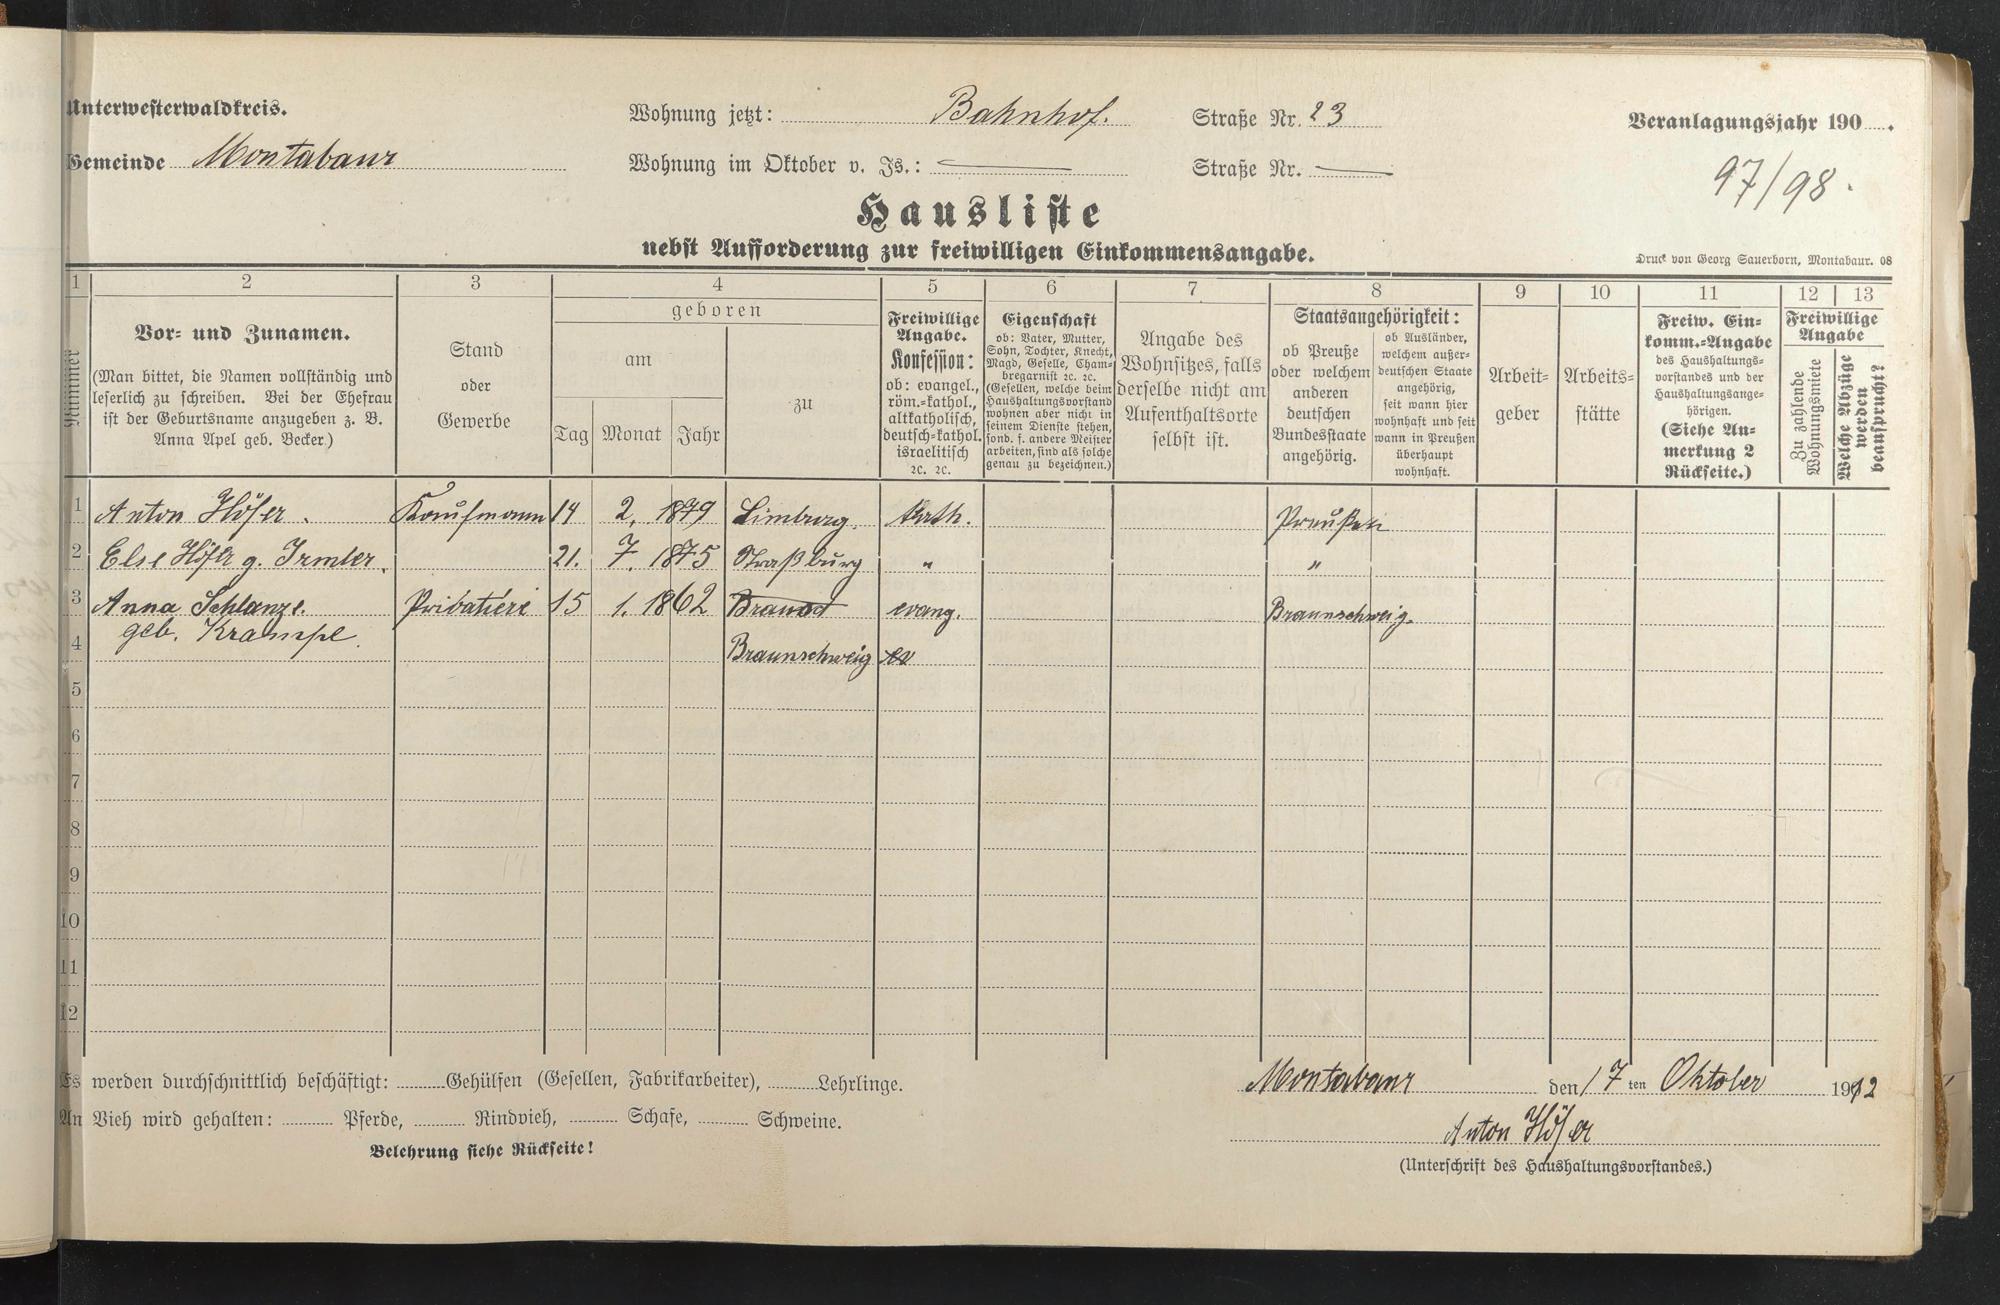 Unterwesterwaldkreis.
Gemeinde Montabaur
Wohnung jetzt: Bahnhof. Straße Nr. 23
Wohnung im Oktober v. Js.: — Straße Nr. —
Veranlagungsjahr 190 .
97/98.
Hausliste
nebst Aufforderung zur freiwilligen Einkommensangabe.
Druck von Georg Sauerborn, Montabaur. 08
1 2 3 4 5 6 7 8 9 10 11 12 13
Nummer
Vor- und Zunamen.
(Man bittet, die Namen vollständig und
leserlich zu schreiben. Bei der Ehefrau
ist der Geburtsname anzugeben z. B.
Anna Apel geb. Becker.)
Stand
oder
Gewerbe
geboren
am
Tag Monat Jahr
zu
Freiwillige
Angabe.
Konfession:
ob: evangel.,
röm.-kathol.,
altkatholisch,
deutsch-kathol.
israelitisch
2c. 2c.
Eigenschaft
ob: Vater, Mutter,
Sohn, Tochter, Knecht,
Magd, Geselle, Cham-
bregarnist 2c. 2c.
(Gesellen, welche beim
Haushaltungsvorstand
wohnen aber nicht in
seinem Dienste stehen,
sond. f. andere Meister
arbeiten, sind als solche
genau zu bezeichnen.)
Angabe des
Wohnsitzes, falls
derselbe nicht am
Aufenthaltsorte
selbst ist.
Staatsangehörigkeit:
ob Preuße
oder welchem
anderen
deutschen
Bundesstaate
angehörig.
ob Ausländer,
welchem außer-
deutschen Staate
angehörig,
seit wann hier
wohnhaft und seit
wann in Preußen
überhaupt
wohnhaft.
Arbeit-
geber
Arbeits-
stätte
Freiw. Ein-
komm.-Angabe
des Haushaltungs-
vorstandes und der
Haushaltungsange-
hörigen.
(Siehe An-
merkung 2
Rückseite.)
Freiwillige
Angabe
Zu zahlende
Wohnungsmiete
Welche Abzüge
werden
beansprucht?
1 Anton Höfer. Kaufmann 14 2. 1879 Limburg. Kath. Preußen
2 Else Höfer g. Irmler. 21. 7. 1875 Straßburg " "
3 Anna Schlanze. Privatiere 15 1. 1862 Braunod evang. Braunschweig.
geb. Krampe.
4 Braunschweig ev
5
6
7
8
9
10
11
12
Es werden durchschnittlich beschäftigt: Gehülfen (Gesellen, Fabrikarbeiter), Lehrlinge.
An Vieh wird gehalten: Pferde, Rindvieh, Schafe, Schweine.
Belehrung siehe Rückseite!
Montabaur den 17 ten Oktober 1912
Anton Höfer
(Unterschrift des Haushaltungsvorstandes.)